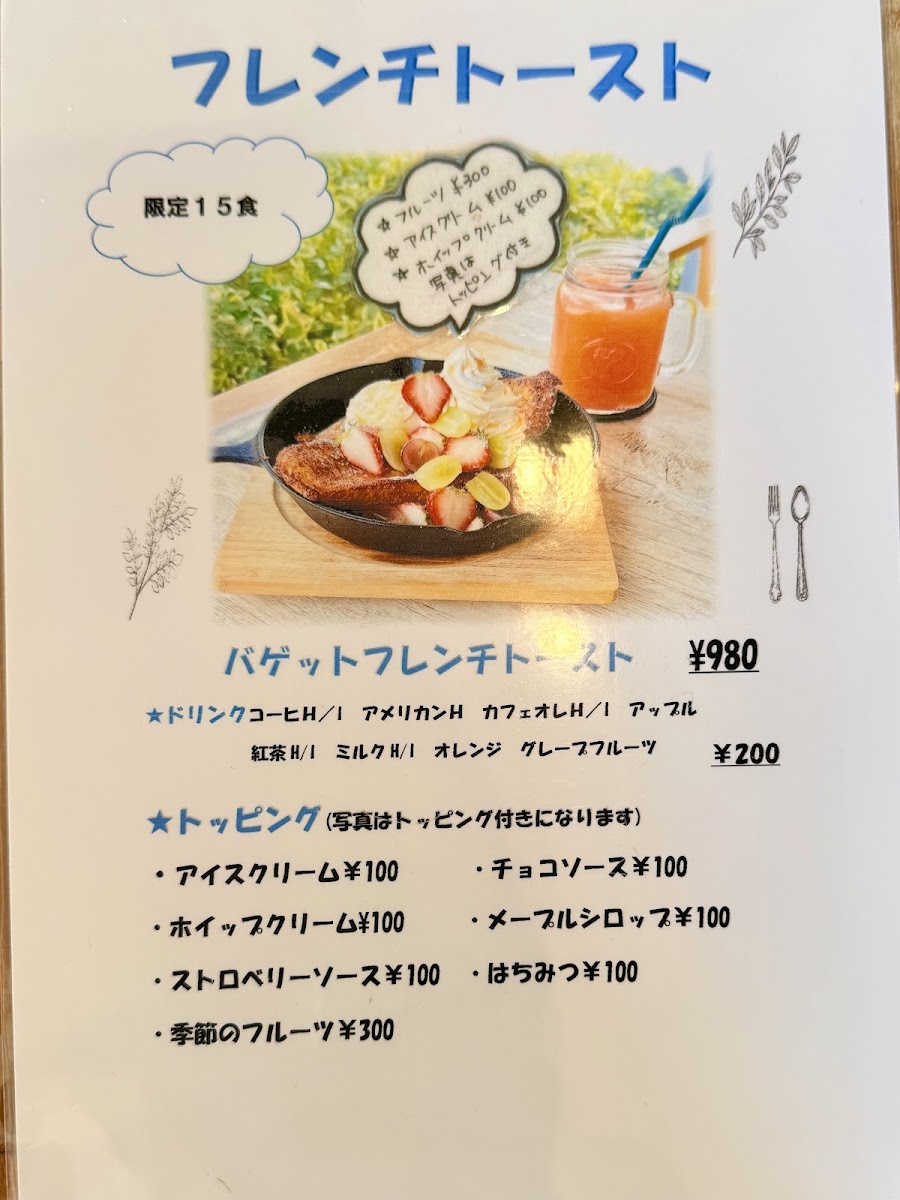 フレンチトースト
限定15食
☆フルーツ ¥300
☆アイスクリーム ¥100
☆ホイップクリーム ¥100
写真は
トッピング付き
バゲットフレンチトースト ¥980
★ドリンクコーヒH／I アメリカンH カフェオレH／I アップル
紅茶H/I ミルクH/I オレンジ グレープフルーツ ¥200
★トッピング(写真はトッピング付きになります)
・アイスクリーム¥100 ・チョコソース¥100
・ホイップクリーム¥100 ・メープルシロップ¥100
・ストロベリーソース¥100 ・はちみつ¥100
・季節のフルーツ¥300